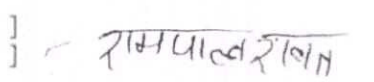 ] - रामपाल रावत
]